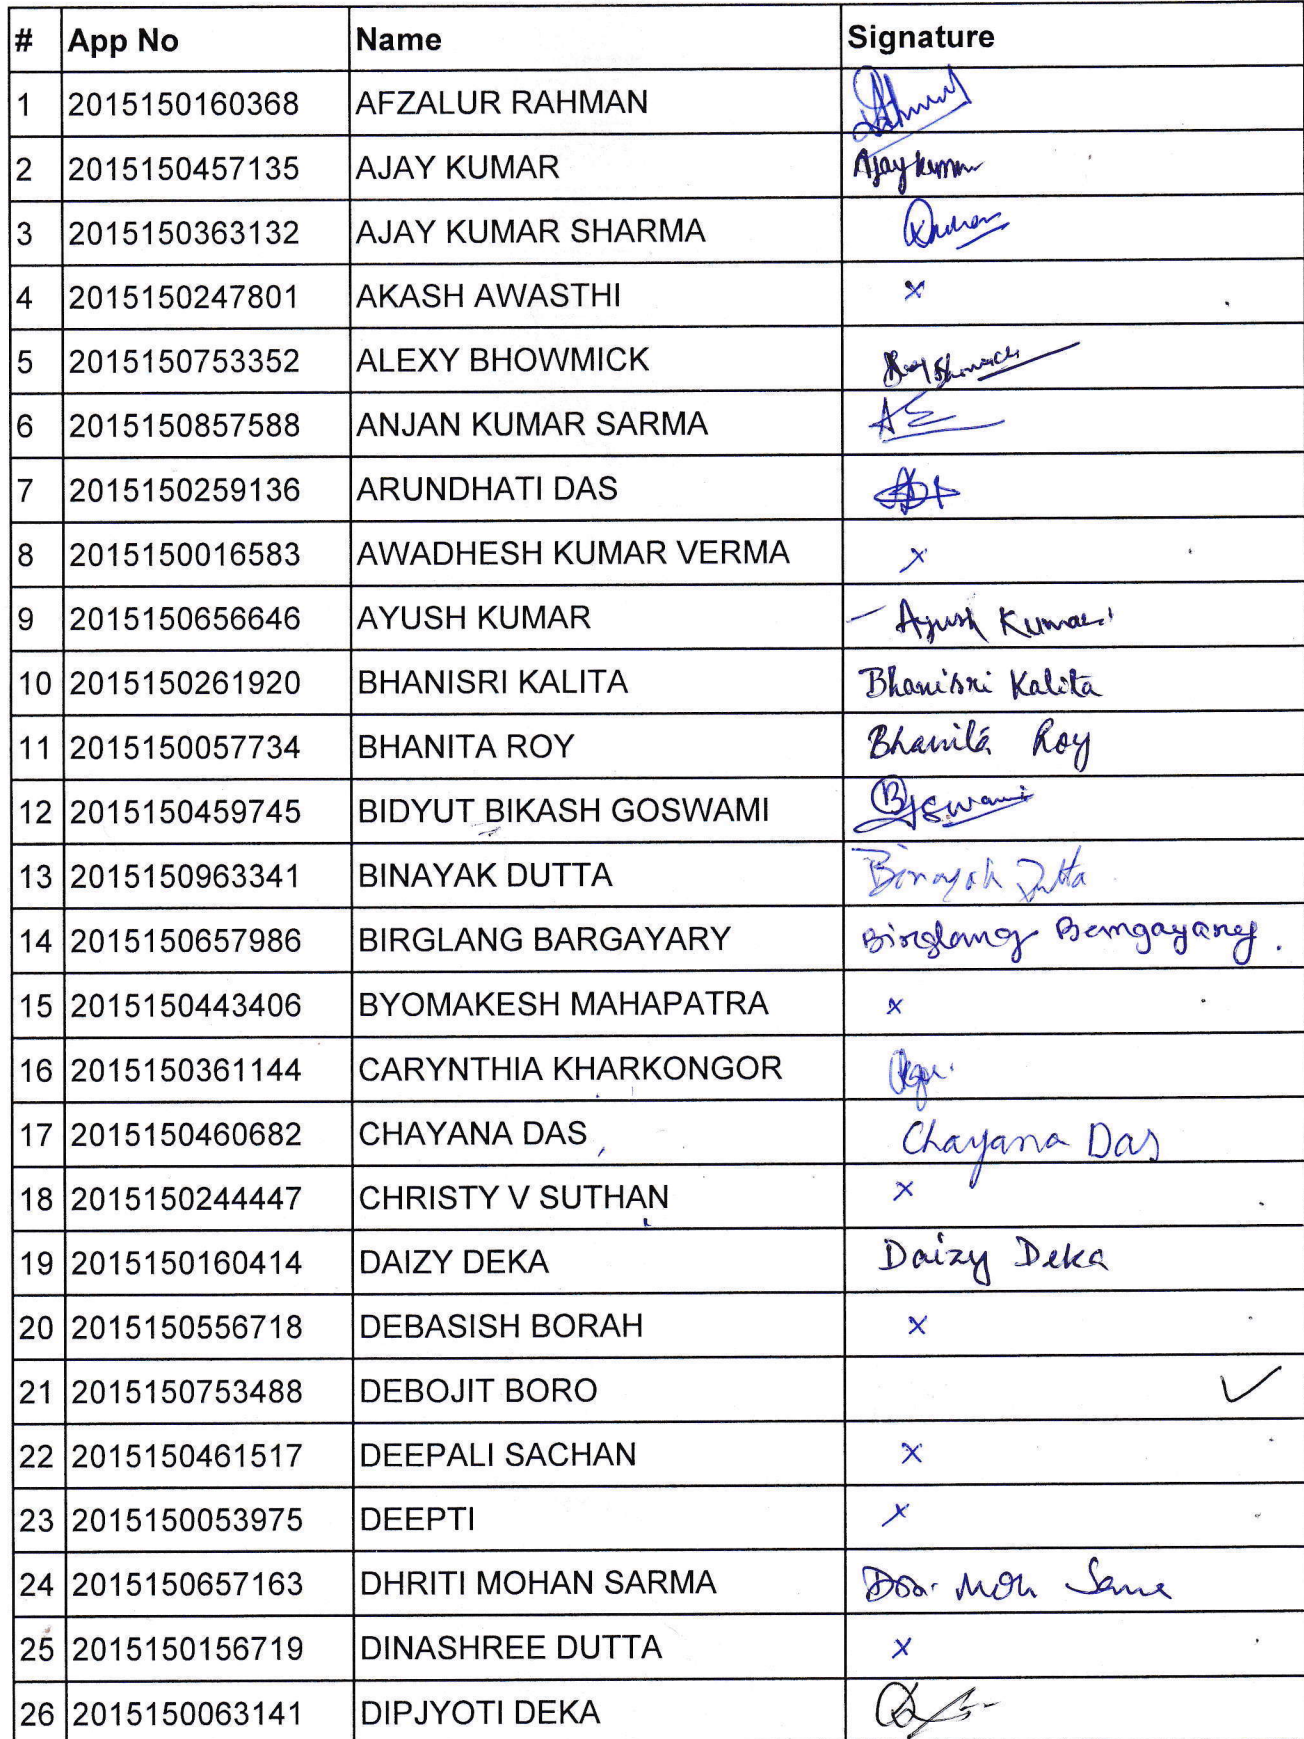 # App No Name Signature
1 2015150160368 AFZALUR RAHMAN
2 2015150457135 AJAY KUMAR Ajay kumar
3 2015150363132 AJAY KUMAR SHARMA
4 2015150247801 AKASH AWASTHI x
5 2015150753352 ALEXY BHOWMICK
6 2015150857588 ANJAN KUMAR SARMA
7 2015150259136 ARUNDHATI DAS
8 2015150016583 AWADHESH KUMAR VERMA x
9 2015150656646 AYUSH KUMAR Ayush Kumar
10 2015150261920 BHANISRI KALITA Bhanisri Kalita
11 2015150057734 BHANITA ROY Bhanita Roy
12 2015150459745 BIDYUT BIKASH GOSWAMI
13 2015150963341 BINAYAK DUTTA Binayak Dutta
14 2015150657986 BIRGLANG BARGAYARY Birglang Bargayary.
15 2015150443406 BYOMAKESH MAHAPATRA x
16 2015150361144 CARYNTHIA KHARKONGOR
17 2015150460682 CHAYANA DAS Chayana Das
18 2015150244447 CHRISTY V SUTHAN x
19 2015150160414 DAIZY DEKA Daizy Deka
20 2015150556718 DEBASISH BORAH x
21 2015150753488 DEBOJIT BORO ✓
22 2015150461517 DEEPALI SACHAN x
23 2015150053975 DEEPTI x
24 2015150657163 DHRITI MOHAN SARMA
25 2015150156719 DINASHREE DUTTA x
26 2015150063141 DIPJYOTI DEKA